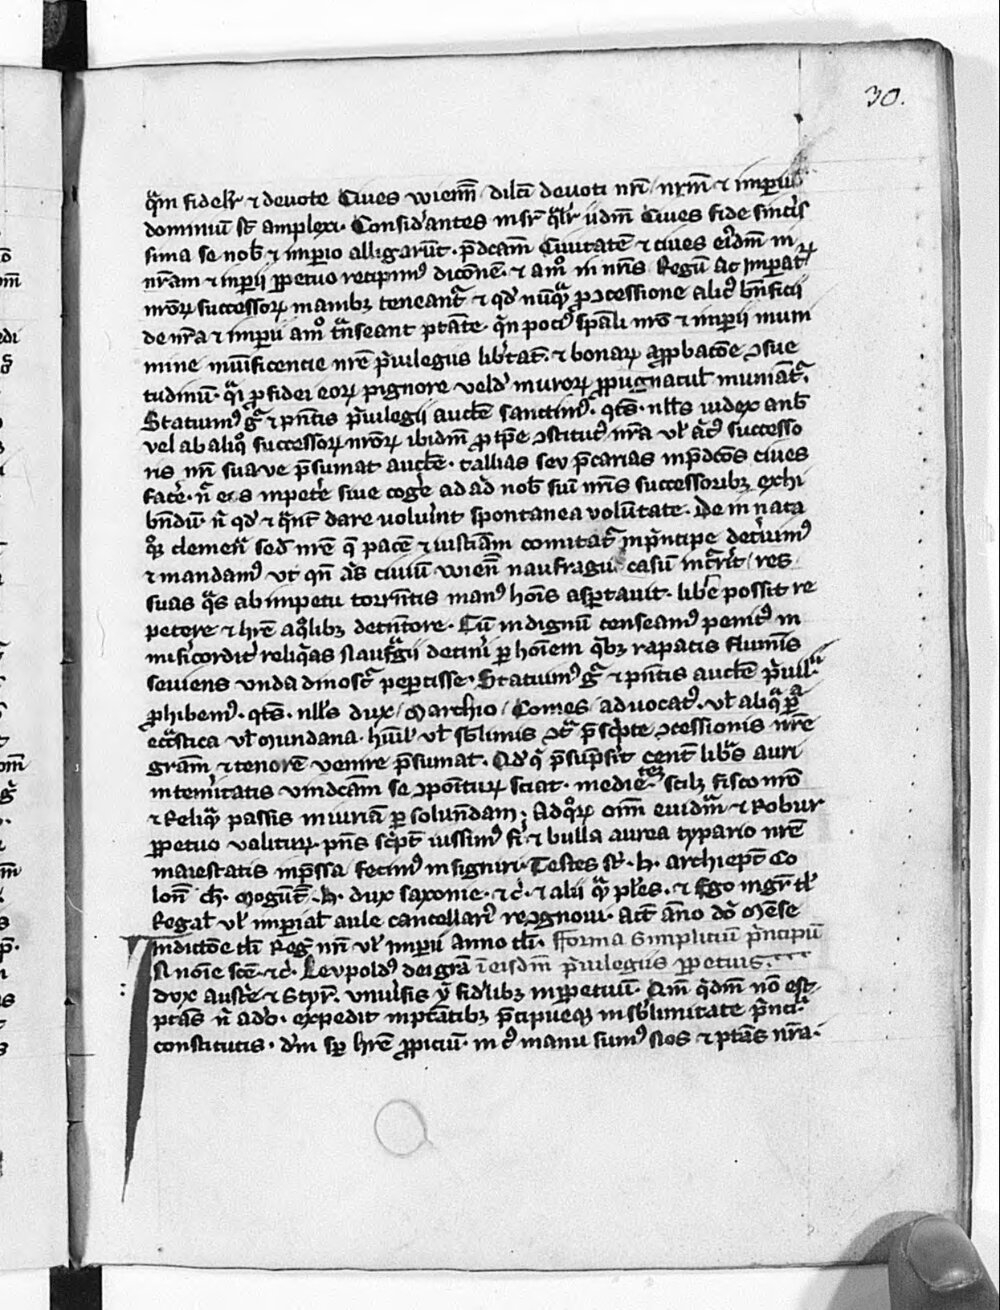 30.
q̄m fidelr̄ ⁊ deuote Ciues wienn̄ / dilc̄i deuoti nr̄i / nr̄m ⁊ imꝑii
dominiū st̄ amplexi · Consid̓antes insr̄ qͣlr̄ iidm̄ Ciues fide sinc̓is
sima se nob̄ ⁊ imꝑio alligarūt · p̄dcam̄ Ciuitatē ⁊ ciues eisdm̄ in
nr̄am ⁊ imꝑii ꝑpetuo recipimꝰ dicōnē · ⁊ amͦ in nr̄is Regū ac imꝑatͦꝝ
nr̄oꝝ successoꝝ manibꝫ teneant̄ ⁊ qd̓ nūqͣ ꝓ ꝯcessione alicꝰ bn̄ficii
de nr̄a ⁊ imꝑii amͦ tn̄seant ptāte · qͥn pociꝰ sp̄ali nr̄o ⁊ imꝑii mun
mine munificentie nr̄e pͥuilegiis lib̓tat̄ · ⁊ bonaꝝ apꝓbacōe ꝯsue
tudinū · qͣi ꝓ fidei eoꝝ pignore velud̓ muroꝝ ꝓpugnacul̓ muniat̄ ·
Statuimꝰ gͦ ⁊ pn̄tis pͥuilegii aucte̅ sanctimꝰ · qͣt̄s · nll̄s iudex a nob̄
vel ab aliqͦ successoꝝ nr̄oꝝ ibidm̄ ꝓ tp̄e ꝯstitutꝰ nr̄a vl̓ alicꝰ successo
ris nr̄i sua ve p̄sumat aucte̅ · tallias seu p̄carias in p̄dcōs ciues
fac̓e · n̄ eos inpet̓e siue cog̓e ad ad nob̄ siue nr̄is successoribꝫ exhi
bn̄dū · n̄ qd̓ ⁊ qͣnt̄ dare uolūint spontanea volūtate · De in nata
qͦꝫ clemen̄ sed̓ nr̄e qͥ pacē ⁊ iustiām comitat̄ in pͥncipe dec̓uimꝰ
⁊ mandamꝰ vt qn̄ aīs ciuiū wienn̄ naufragii casū incͣrit / res
suas qͣs ab impetu torrn̄tis manꝰ hoīs asportauit · lib̓e possit re
petere ⁊ hr̄e a qͦlibꝫ detn̄tore · Cū indignū censeamꝰ penitꝰ in
mis̓icordit̓ reliqͥas naufͣgii detin̓i ꝑ hoīem qͥbꝫ rapacis flumīs
seuiens vnda dinoscͥt̄ peꝑcisse · Statuimꝰ gͦ ⁊ pn̄tis aucte̅ pͥuilͥⁱ
ꝓhibemꝰ · qͣt̄s · nll̄s dux / Marchio / Comes / aduocatꝰ · vl̓ aliqͣ ꝑª
ecc̄stica vl̓ Mundana · hūil̓ vl̓ sb̄limis ꝯtͣ p̄sc̓pte ꝯcessionis nr̄e
gram̄ ⁊ tenorē venire p̄sumat · Qd̓ qͥ p̄sūpsit cent̄ libr̓s auri
in tem̓itatis vindcam̄ se ꝯponituꝝ sciat · medie̅tē scilꝫ fisco nr̄o
⁊ Reliqͣ passis iniuriā ꝑ soluendam ; Ad qͦꝝ om̄ euidm̄ ⁊ Robur
ꝑpetuo valituꝝ · pn̄s sc̓pt̄ iussimꝰ fi̓i ⁊ bulla aurea typario nr̄e
maiestatis inp̄ssa fecimꝰ insigniri · Testes st̄ · h̓ · archiep̄c̄ Co
lon̄ · ch̄ · Mogunt̄ · h̓ · dux saxonie · ⁊ c̓ · ⁊ alii qͣ ples̄ · ⁊ Ego mgr̄ tl̓
Regal̓ vl̓ imꝑial̓ aule cancellariꝰ reꝯgnoui · Act̄ anno dō Mēse
Indictōe tli̓ Reḡ nr̄i vl̓ imꝑii anno tli̓ · Fforma Simpliciū pͥncipū
N noīe scē · ⁊ c̓ · Levpoldꝰ dei gr̄a i̅ eisdm̄ pͥuilegiis ꝑpetuis
dux austr̓e ⁊ Styr̄ · vniu̓sis x̄ fid̓libꝫ in ꝑpetuū · Qm̄ qͥdm̄ nō est
ptās n̄ a dō · expedit in ptān̄tibꝫ p̄cipueqꝫ in sb̄limitate pͥncͥ
constitutis · dn̄i sꝑ hr̄e ꝓpiciū · in cꝰ manu sumꝰ nos ⁊ ptās nr̄a ·